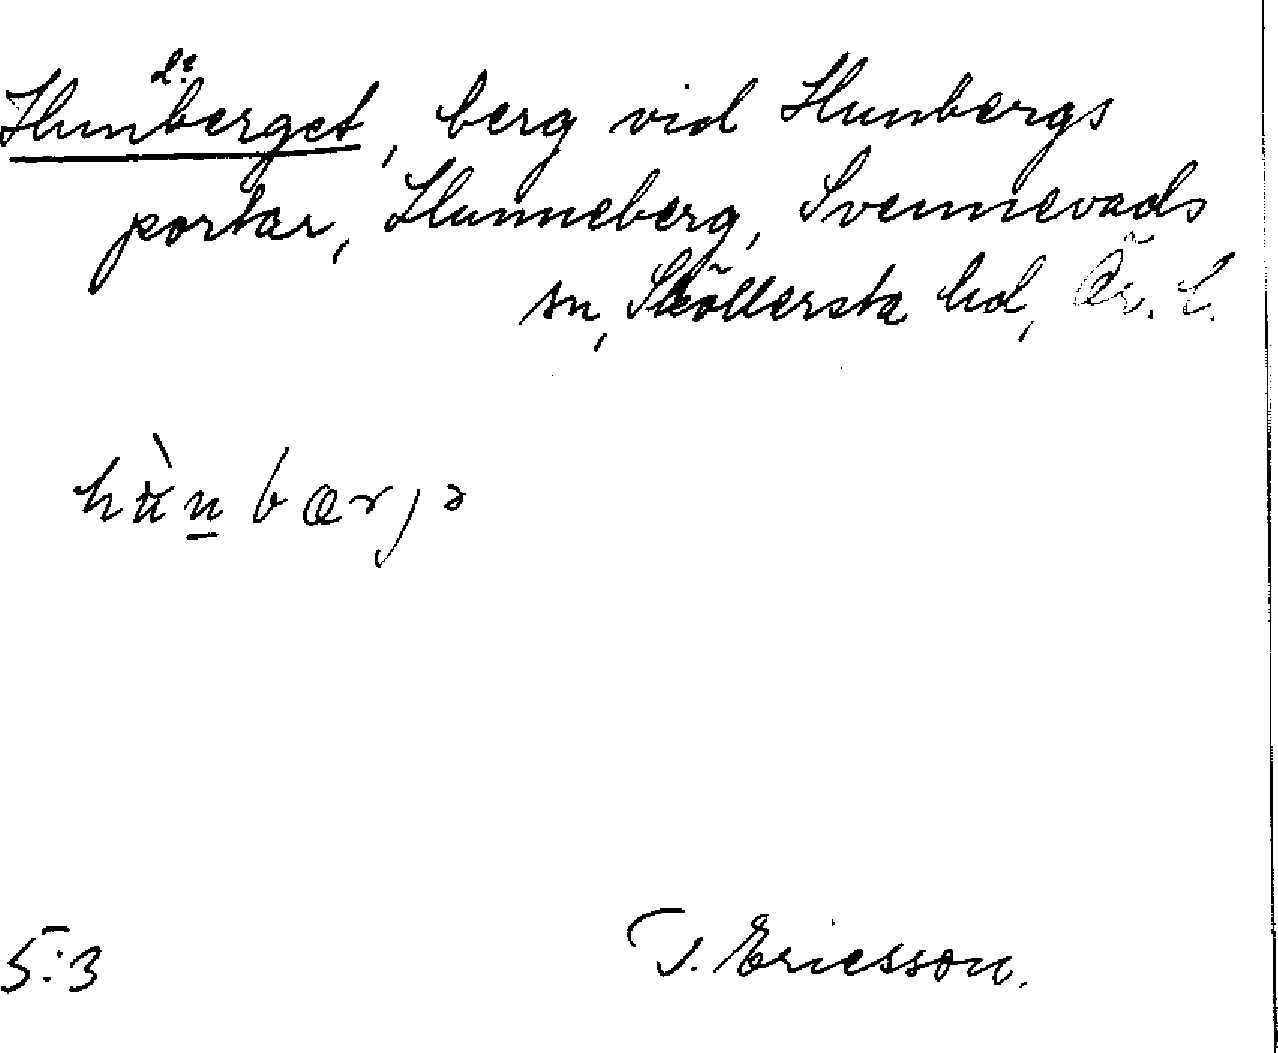 Hunberget, berg vid Hunbergs
portar, Hunneberg, Svennevads
sn, Sköllersta hd, Ör. l.
hùn bærjə
5:3 T. Ericsson.